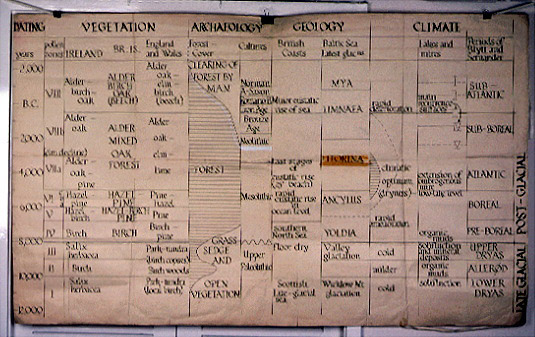 DATING VEGETATION ARCHAEOLOGY GEOLOGY CLIMATE
years
pollen zones
IRELAND
BR. IS.
England and Wales
Forest Cover
Cultures
British Coasts
Baltic Sea
Latest glacins
Lakes and mires
Periods of Blytt and Sernander
2,000
B.C.
2,000
4,000
6,000
8,000
10,000
12,000
VIII
VIIb
VIIa
VI
V
IV
III
II
I
Alder
birch-
oak
Alder
oak
Alder-
oak-
pine
Hazel
pine
Hazel
birch
Birch
Salix
herbacea
Birch
Salix
herbacea
ALDER
BIRCH
OAK
(BEECH)
ALDER
MIXED
OAK
FOREST
HAZEL
PINE
BIRCH
Alder
oak-
elm-
birch
(beech)
Alder
oak-
elm-
lime
Pine
hazel
Birch-
pine
Park-tundra
(birch copses)
Birch woods
Park-tundra
(local birch)
CLEARING OF
FOREST BY
MAN
FOREST
GRASS
SEDGE
AND
OPEN
VEGETATION
Norman
A-Saxon
Romano
Iron Age
Bronze
Age
Neolithic
Mesolithic
Upper
Paleolithic
Minor eustatic
rise of sea
Last stages
of
eustatic rise
of
ocean level
Southern
North Sea
floor dry
Scottish
late-glacial
sea
MYA
LIMNAEA
LITTORINA
ANCYLUS
YOLDIA
Valley
glaciation
Wicklow Mt.
glaciation
rapid
deterioration
climatic
optimum
(dryness)
rapid
cold
milder
cold
main
recurrence
surfaces
extension of
ombrogenous
mire
low lake level
organic
muds
Solifluction
and mineral
deposits
organic
muds
Solifluction
SUB-
ATLANTIC
SUB-BOREAL
ATLANTIC
BOREAL
PRE-BOREAL
UPPER
DRYAS
ALLERØD
LOWER
DRYAS
POST-GLACIAL
LATE GLACIAL